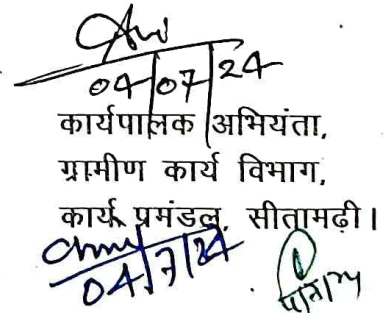 04/07/24
कार्यपालक अभियंता,
ग्रामीण कार्य विभाग,
कार्य प्रमंडल, सीतामढ़ी।
04/7/24